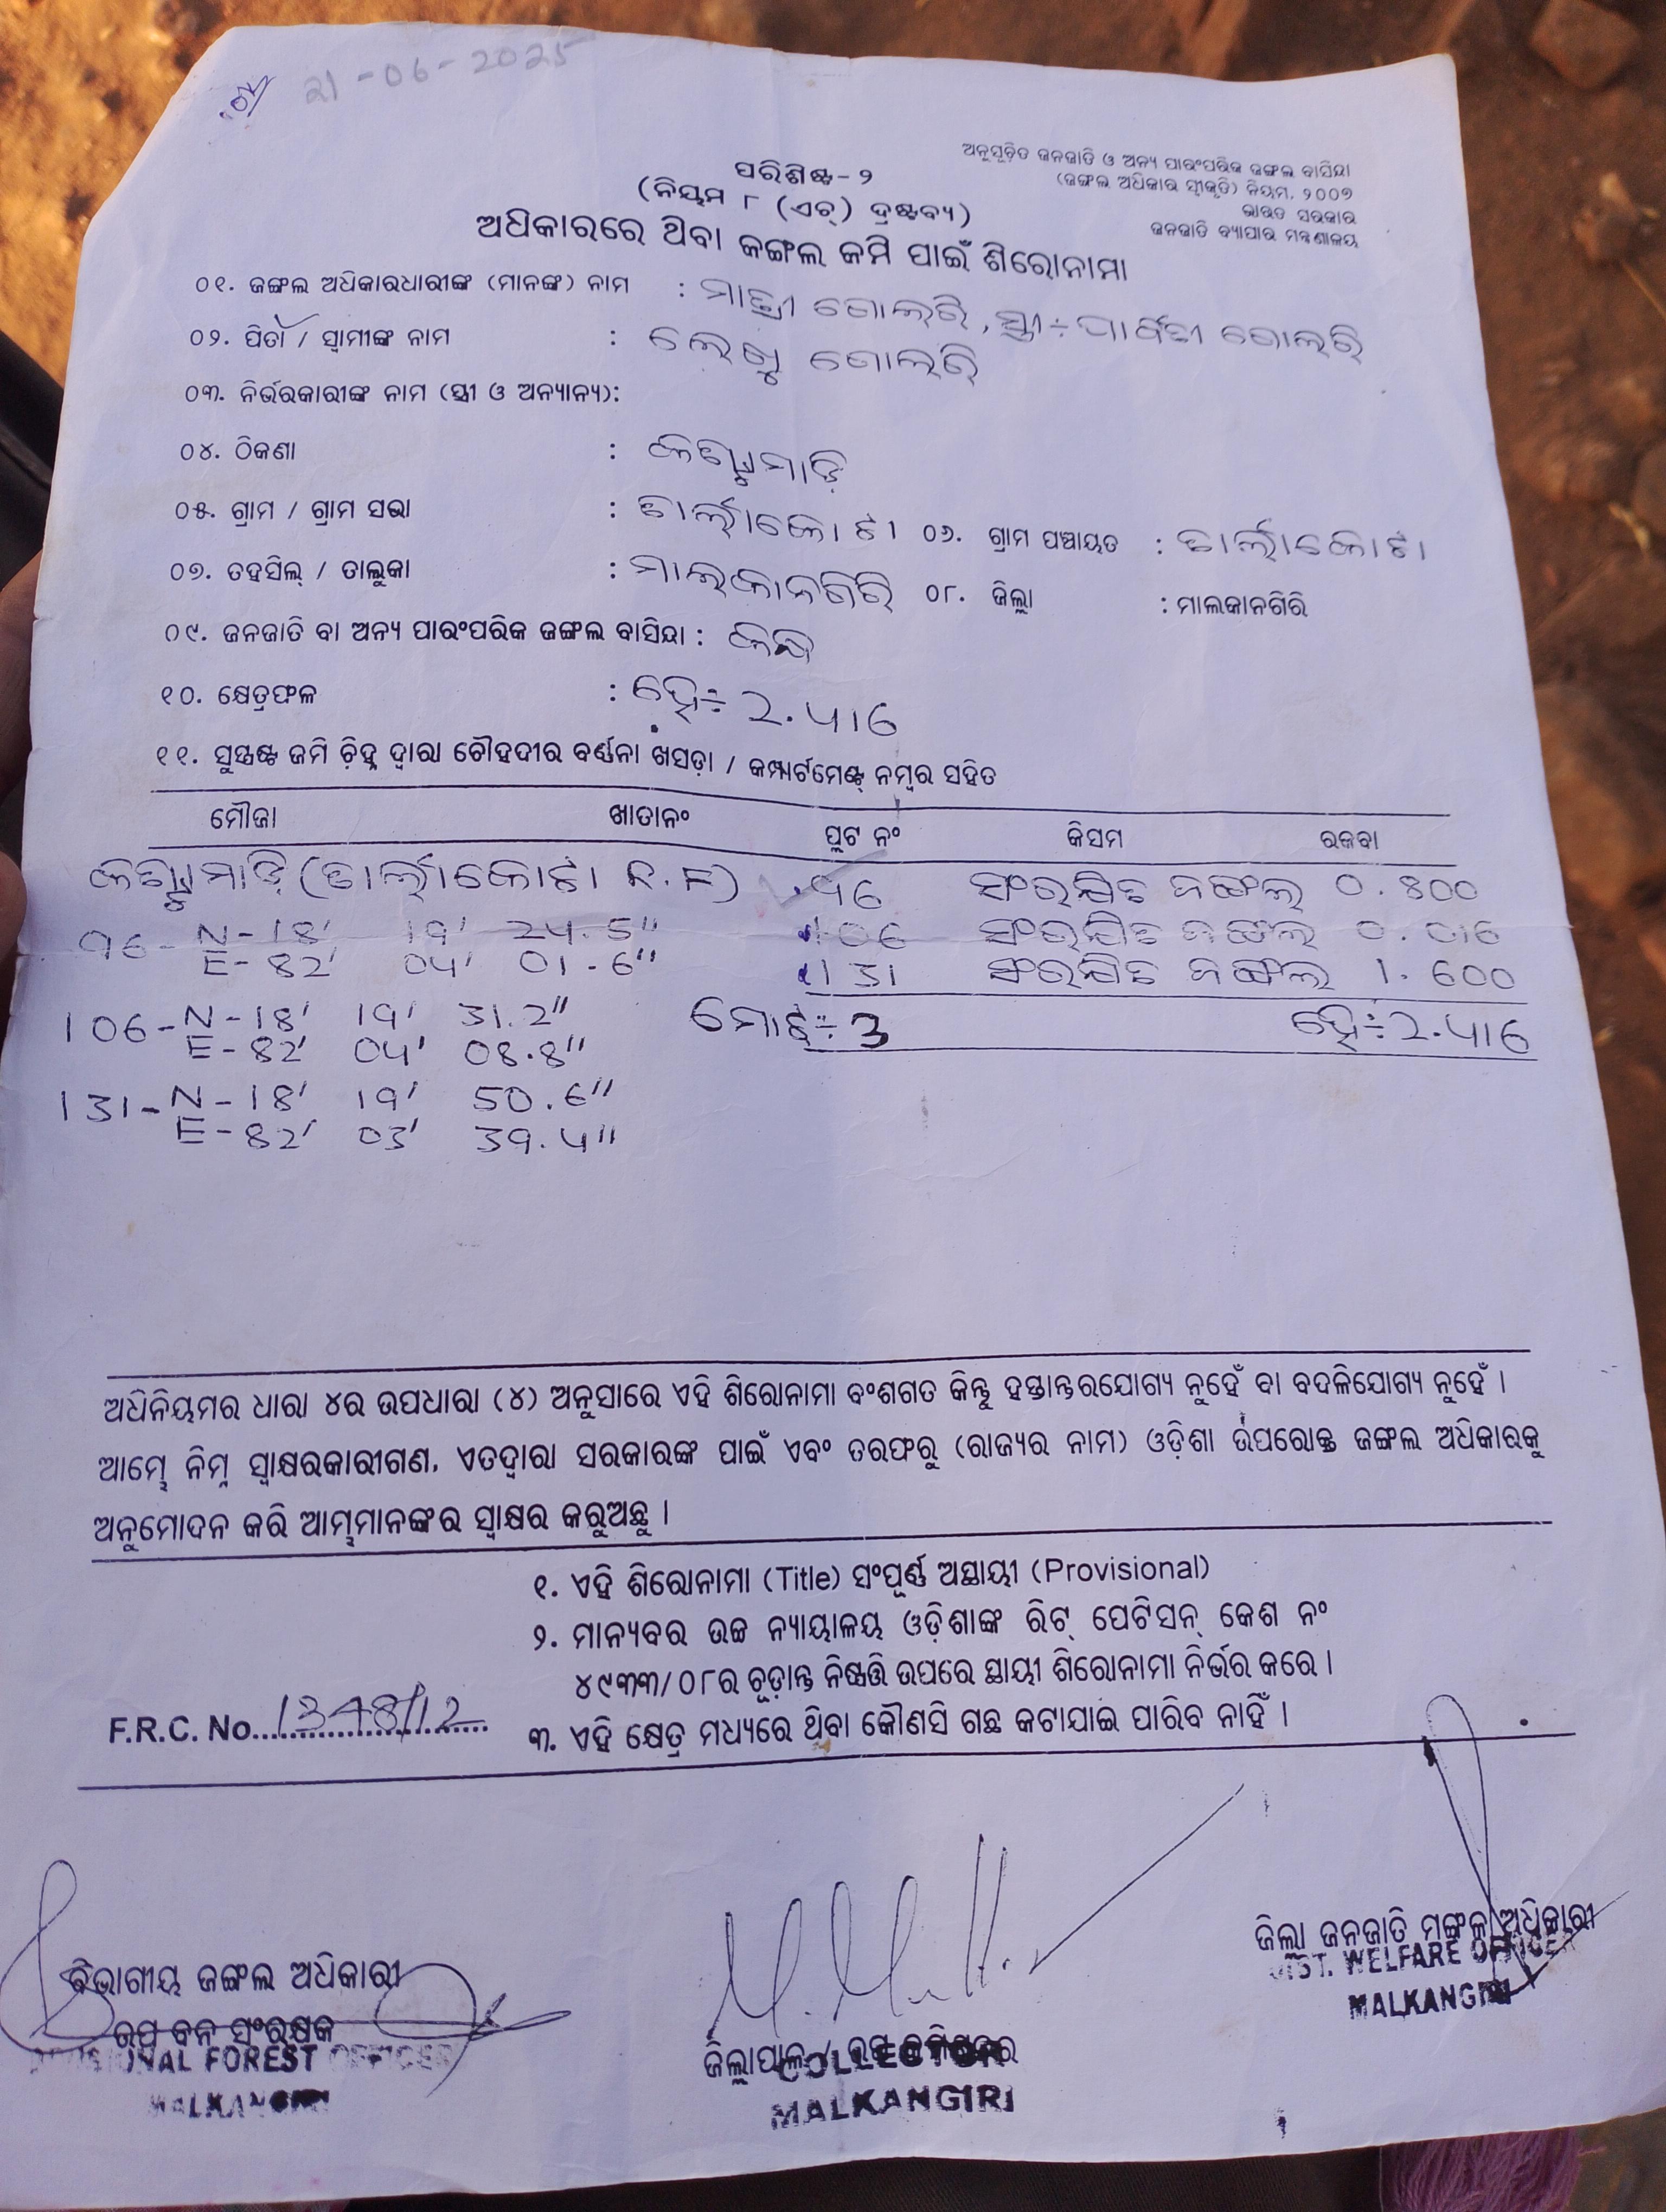 21-06-2025
ଅନୁସୂଚିତ ଜନଜାତି ଓ ଅନ୍ୟ ପାରଂପରିକ ଜଙ୍ଗଲ ବାସିନ୍ଦା
(ଜଙ୍ଗଲ ଅଧିକାର ସ୍ୱୀକୃତି) ନିୟମ, ୨୦୦୭
ଭାରତ ସରକାର
ଜନଜାତି ବ୍ୟାପାର ମନ୍ତ୍ରଣାଳୟ
ପରିଶିଷ୍ଟ-୨
(ନିୟମ ୮ (ଏଚ୍) ଦ୍ରଷ୍ଟବ୍ୟ)
ଅଧିକାରରେ ଥିବା ଜଙ୍ଗଲ ଜମି ପାଇଁ ଶିରୋନାମା
୦୧. ଜଙ୍ଗଲ ଅଧିକାରଧାରୀଙ୍କ (ମାନଙ୍କ) ନାମ : ଗୋଲରି, ସ୍ତ୍ରୀ÷ ପାର୍ବତୀ ଗୋଲରି
୦୨. ପିତା / ସ୍ୱାମୀଙ୍କ ନାମ : ଗୋଲରି
୦୩. ନିର୍ଭରକାରୀଙ୍କ ନାମ (ସ୍ତ୍ରୀ ଓ ଅନ୍ୟାନ୍ୟ):
୦୪. ଠିକଣା :
୦୫. ଗ୍ରାମ / ଗ୍ରାମ ସଭା : ତାର୍ଲାକୋଟା ୦୬. ଗ୍ରାମ ପଞ୍ଚାୟତ : ତାର୍ଲାକୋଟା
୦୭. ତହସିଲ୍ / ତାଲୁକା : ମାଲକାନଗିରି ୦୮. ଜିଲ୍ଲା : ମାଲକାନଗିରି
୦୯. ଜନଜାତି ବା ଅନ୍ୟ ପାରଂପରିକ ଜଙ୍ଗଲ ବାସିନ୍ଦା : କନ୍ଧ
୧୦. କ୍ଷେତ୍ରଫଳ : ହେ÷ 2.416
୧୧. ସୁସ୍ପଷ୍ଟ ଜମି ଚିହ୍ନ ଦ୍ୱାରା ଚୌହଦୀର ବର୍ଣ୍ଣନା ଖସଡ଼ା / କମ୍ପାର୍ଟମେଣ୍ଟ ନମ୍ବର ସହିତ
ମୌଜା ଖାତାନଂ ପ୍ଲଟ ନଂ କିସମ ରକବା
(ତାର୍ଲାକୋଟା R.F) 96 ସଂରକ୍ଷିତ ଜଙ୍ଗଲ 0.800
96- N-18' 19' 24.5" 106 ସଂରକ୍ଷିତ ଜଙ୍ଗଲ 0.016
E-82' 04' 01.6" 131 ସଂରକ୍ଷିତ ଜଙ୍ଗଲ 1.600
106- N-18' 19' 31.2" ମୋଟ÷ 3 ହେ÷2.416
E-82' 04' 08.8"
131- N-18' 19' 50.6"
E-82' 03' 39.4"
ଅଧିନିୟମର ଧାରା ୪ର ଉପଧାରା (୪) ଅନୁସାରେ ଏହି ଶିରୋନାମା ବଂଶଗତ କିନ୍ତୁ ହସ୍ତାନ୍ତରଯୋଗ୍ୟ ନୁହେଁ ବା ବଦଳିଯୋଗ୍ୟ ନୁହେଁ ।
ଆମ୍ଭେ ନିମ୍ନ ସ୍ୱାକ୍ଷରକାରୀଗଣ, ଏତଦ୍ୱାରା ସରକାରଙ୍କ ପାଇଁ ଏବଂ ତରଫରୁ (ରାଜ୍ୟର ନାମ) ଓଡ଼ିଶା ଉପରୋକ୍ତ ଜଙ୍ଗଲ ଅଧିକାରକୁ
ଅନୁମୋଦନ କରି ଆମ୍ଭମାନଙ୍କର ସ୍ୱାକ୍ଷର କରୁଅଛୁ ।
୧. ଏହି ଶିରୋନାମା (Title) ସଂପୂର୍ଣ୍ଣ ଅସ୍ଥାୟୀ (Provisional)
୨. ମାନ୍ୟବର ଉଚ୍ଚ ନ୍ୟାୟାଳୟ ଓଡ଼ିଶାଙ୍କ ରିଟ୍ ପେଟିସନ୍ କେଶ ନଂ
୪୯୩୩/୦୮ର ଚୂଡ଼ାନ୍ତ ନିଷ୍ପତ୍ତି ଉପରେ ସ୍ଥାୟୀ ଶିରୋନାମା ନିର୍ଭର କରେ ।
F.R.C. No. 1348/12
୩. ଏହି କ୍ଷେତ୍ର ମଧ୍ୟରେ ଥିବା କୌଣସି ଗଛ କଟାଯାଇ ପାରିବ ନାହିଁ ।
ବିଭାଗୀୟ ଜଙ୍ଗଲ ଅଧିକାରୀ
ଉପ ବନ ସଂରକ୍ଷକ
DIVISIONAL FOREST OFFICER
MALKANGIRI
ଜିଲ୍ଲାପାଳ / ଉପ କମିଶନର
COLLECTOR
MALKANGIRI
ଜିଲ୍ଲା ଜନଜାତି ମଙ୍ଗଳ ଅଧିକାରୀ
DIST. WELFARE OFFICER
MALKANGIRI